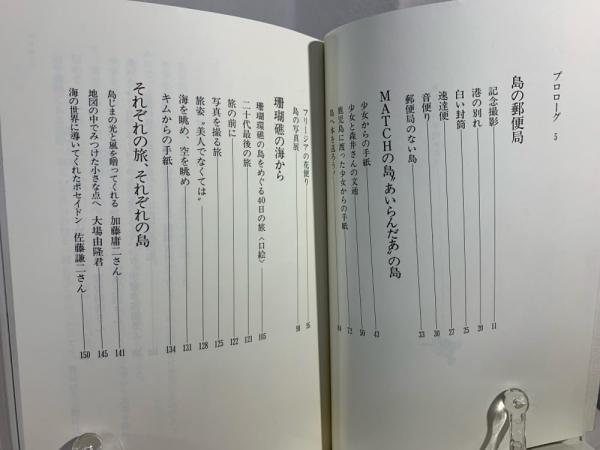 プロローグ 5
島の郵便局
記念撮影 11
港の別れ 20
白い封筒 25
速達便 27
音便り 30
郵便局のない島 33
MATCHの島〝あいらんだあ〟の島
少女からの手紙 43
少女と森井さんの文通 56
鹿児島に渡った少女からの手紙 72
島へ本を送ろう！ 84
フリージアの花便り 95
島の写真展 98
珊瑚礁の海から
珊瑚環礁の島をめぐる40日の旅〈口絵〉 105
二十代最後の旅 121
旅の前に 122
写真を撮る旅 125
旅姿〝美人でなくては〟 128
海を眺め、空を眺め 131
キムからの手紙 134
それぞれの旅、それぞれの島
島じまの光と風を贈ってくれる 加藤庸二さん 141
地図の中でみつけた小さな点へ 大場由隆君 145
海の世界に導いてくれたポセイドン 佐藤謙二さん 150